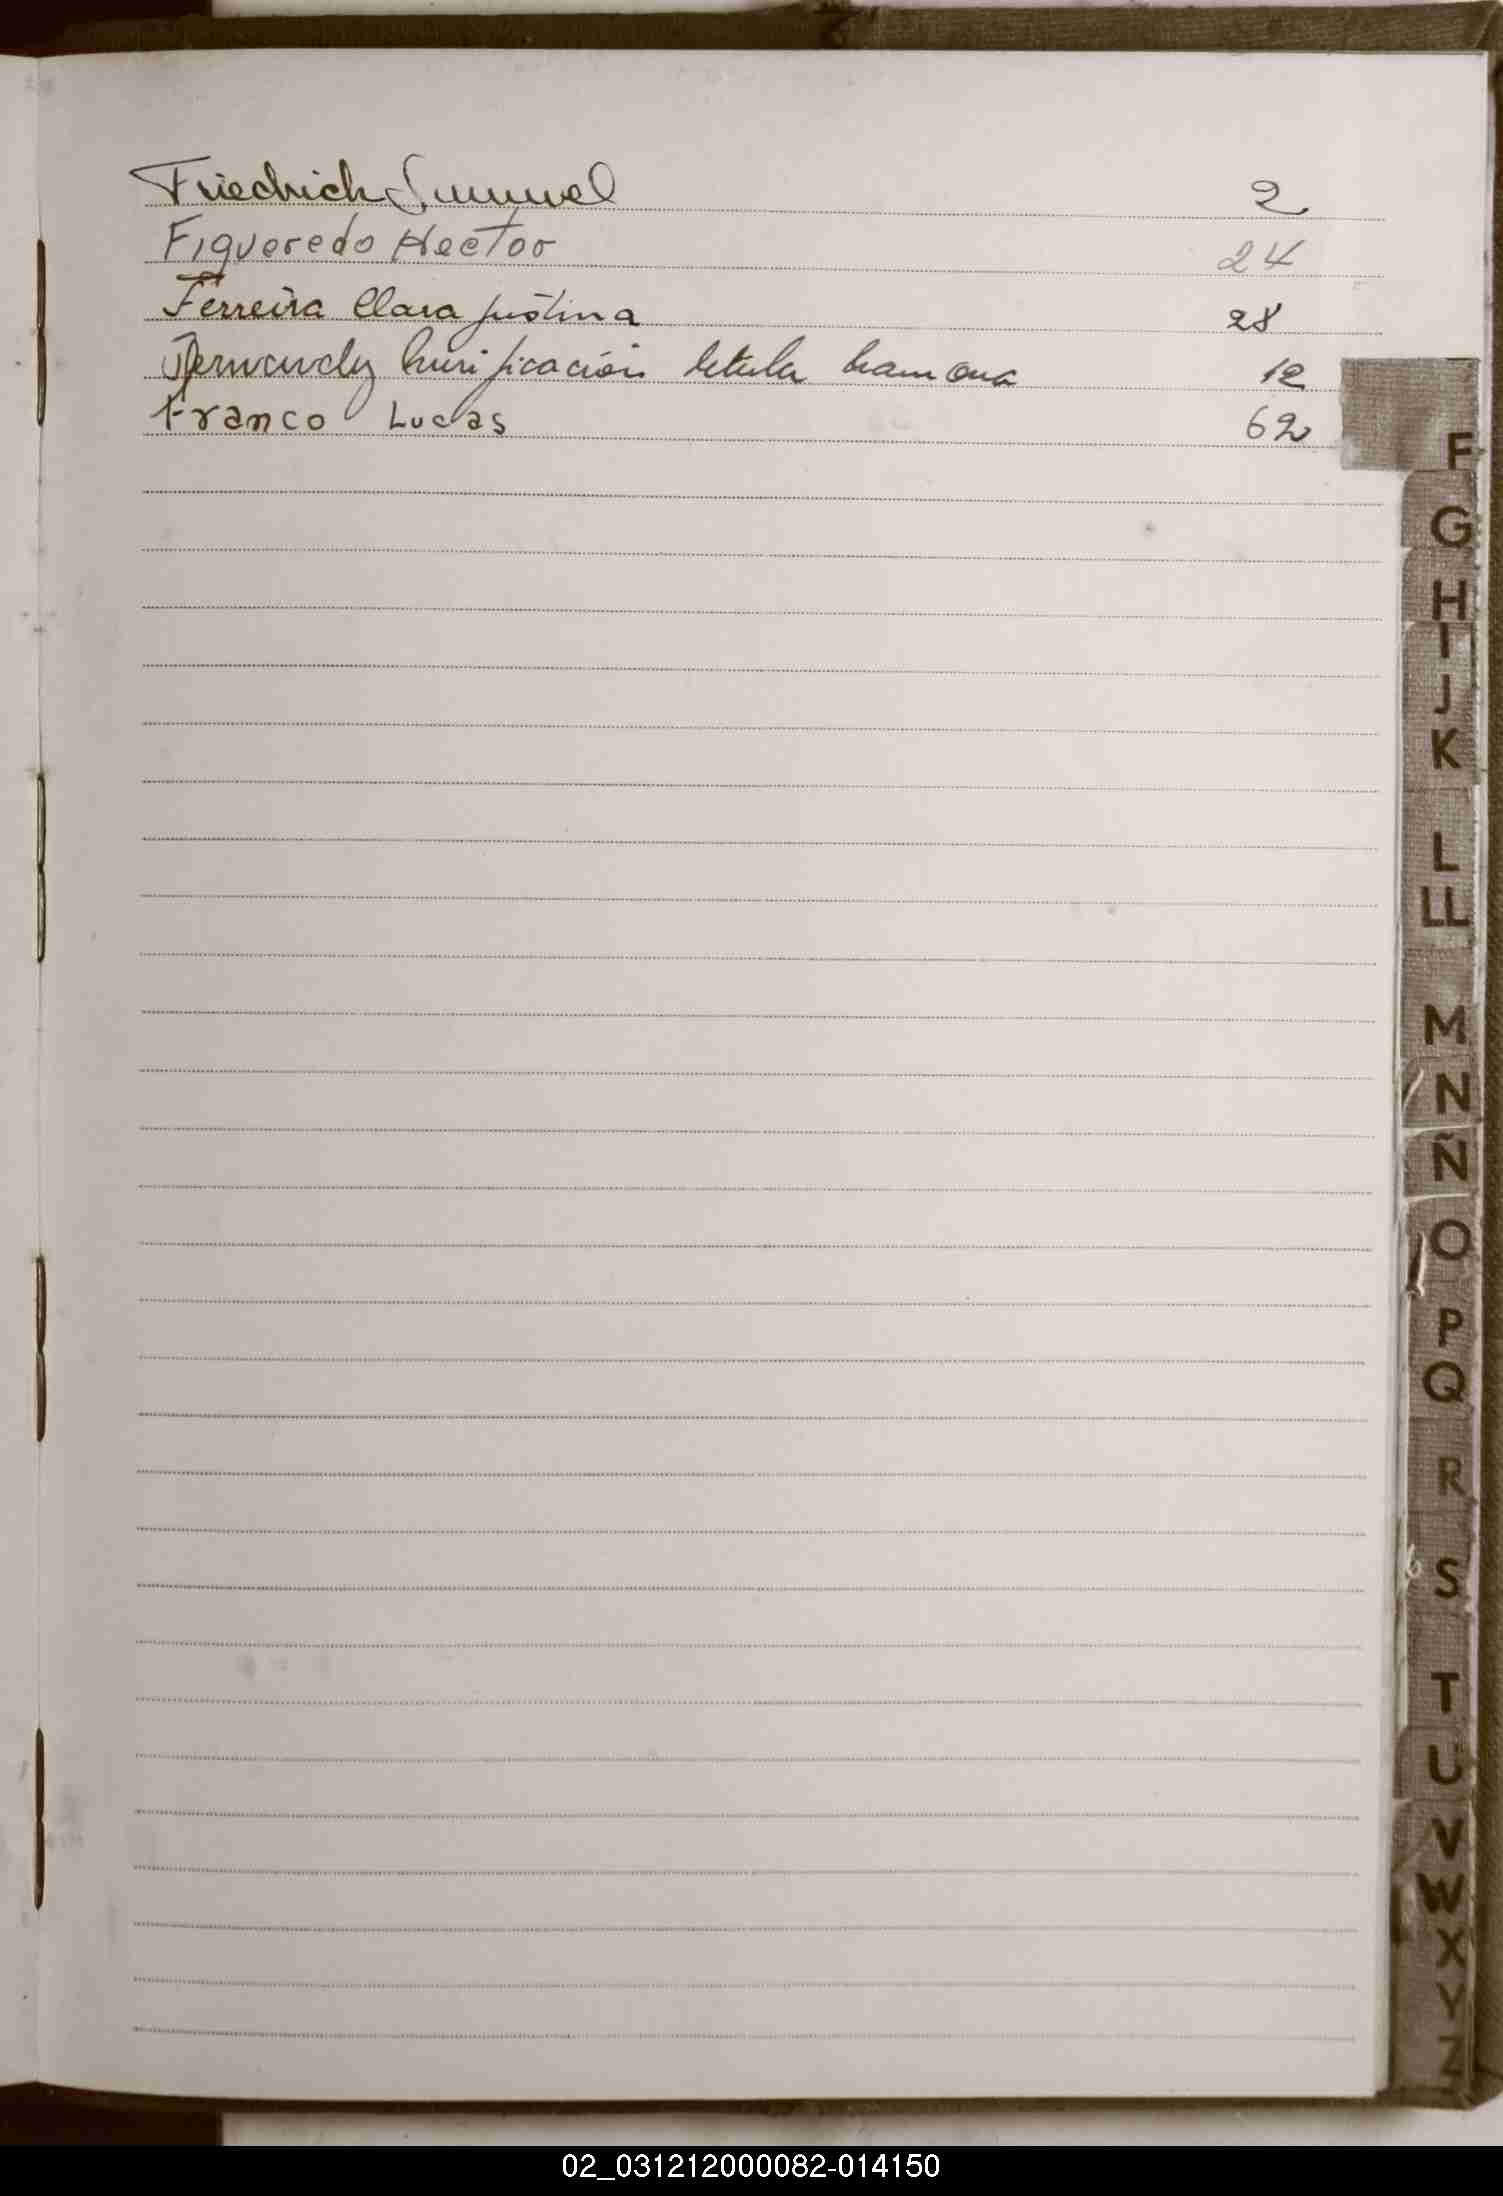 Friedrich 2
Figueredo Hector 24
Ferreira Clara Justina 28
Fernandez Purificación ramona 12
Franco Lucas 62
F
G
H
I
J
K
L
LL
M
N
Ñ
O
P
Q
R
S
T
U
V
W
X
Y
Z
02_031212000082-014150